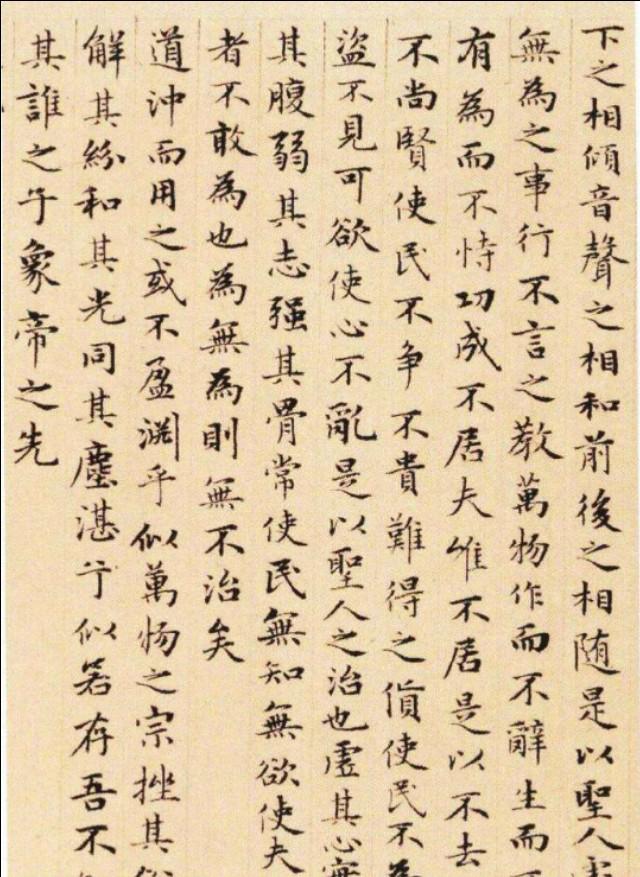 下之相傾音聲之相和前後之相随是以聖人
無為之事行不言之教萬物作而不辭生而
有為而不恃功成不居夫惟不居是以不去
不尚賢使民不争不貴難得之貨使民不為
盜不見可欲使心不亂是以聖人之治也虛其心實
其腹弱其志强其骨常使民無知無欲使夫
者不敢為也為無為則無不治矣
道沖而用之或不盈淵乎似萬物之宗挫其
解其紛和其光同其塵湛乎似若存吾不
其誰之子象帝之先